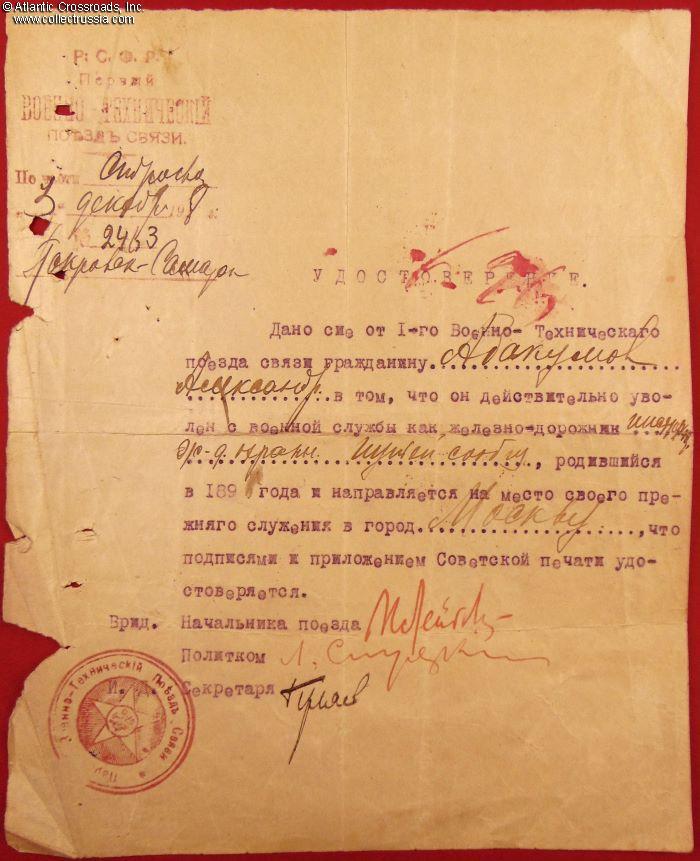 © Atlantic Crossroads, Inc.
www.collectrussia.com
Р. С. Ф. Р.
Первый
ВОЕННО-ТЕХНИЧЕСКІЙ
ПОѢЗДЪ СВЯЗИ.
По части
3 декабр 1918 г.
№ 2463
УДОСТОВЕРЕНИЕ.
Дано сие от I-го Военно-Техническаго
поезда связи гражданину Абакумов
Александр. в том, что он действительно уво-
лен с военной службы как железно-дорожник
ж-д охраны путей сообщ, родившийся
в 189 года и направляется на место своего пре-
жняго служения в город Москву, что
подписями и приложением Советской печати удо-
стоверяется.
Врид. Начальника поезда
Политком
И. Секретаря
Военно-Техническій Поѣздъ Связи